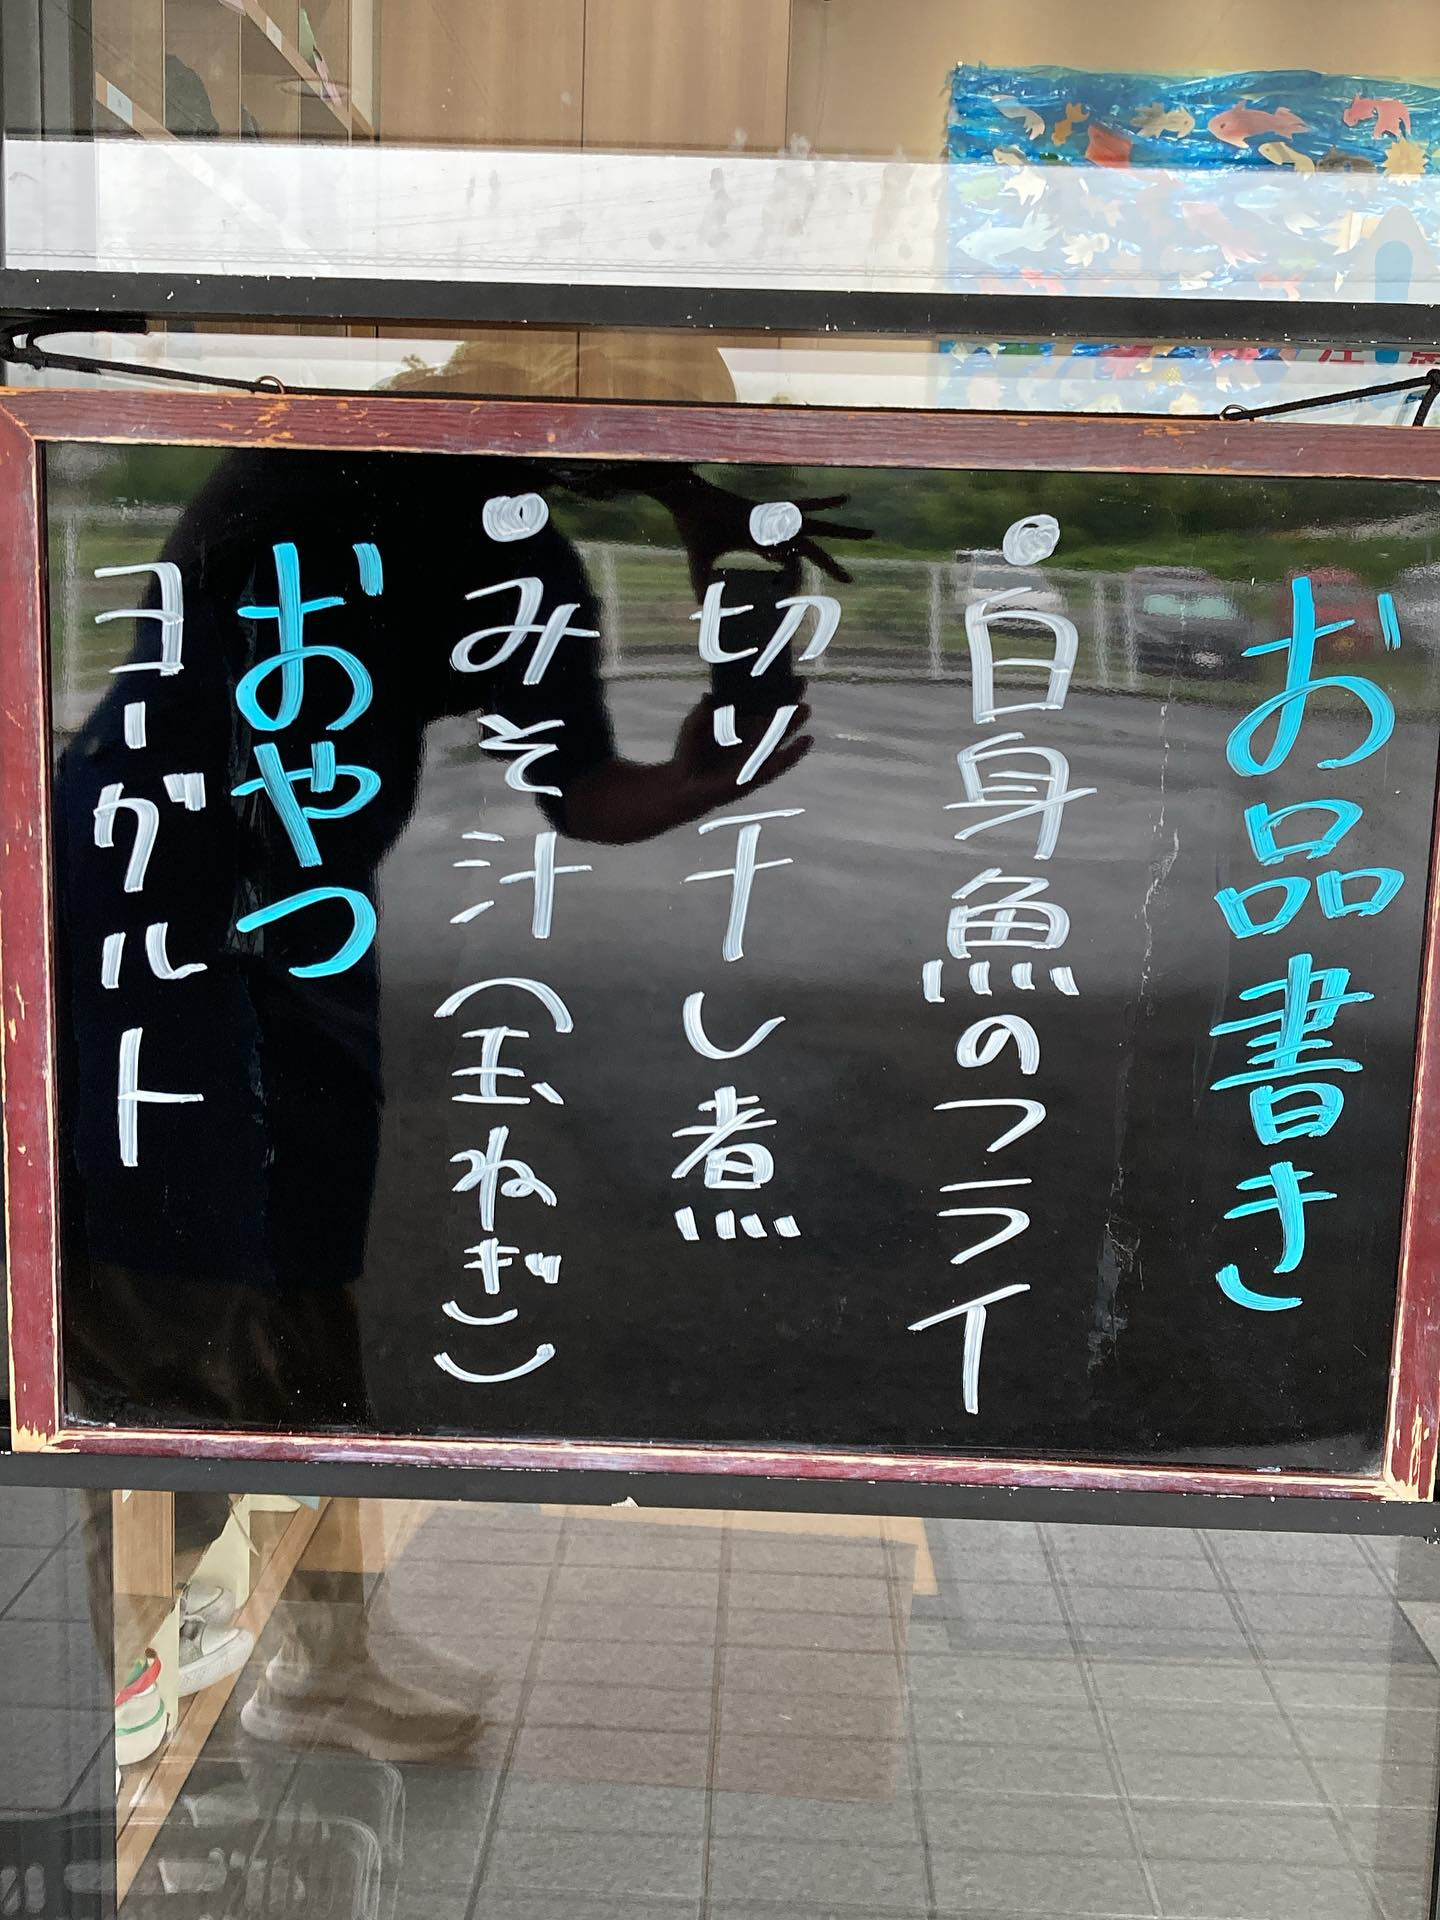 お品書き
・白身魚のフライ
・切り干し煮
・みそ汁(玉ねぎ)
おやつ
ヨーグルト